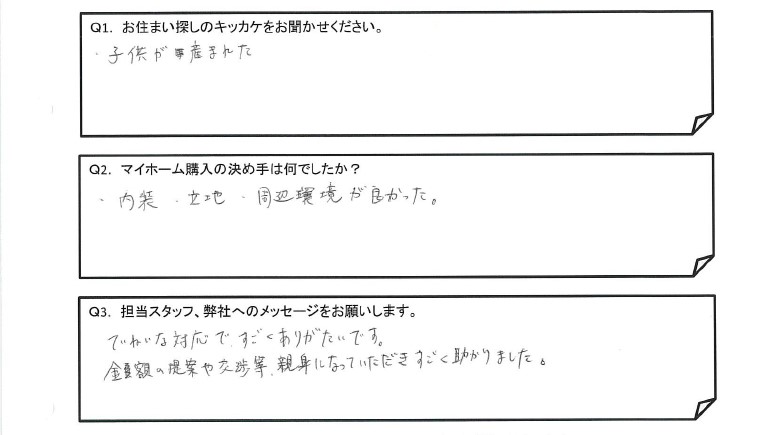 Q1. お住まい探しのキッカケをお聞かせください。
・子供が産まれた
Q2. マイホーム購入の決め手は何でしたか？
・内装 ・立地 ・周辺環境が良かった。
Q3. 担当スタッフ、弊社へのメッセージをお願いします。
ていねいな対応で、すごくありがたいです。
金額の提案や交渉等、親身になっていただきすごく助かりました。